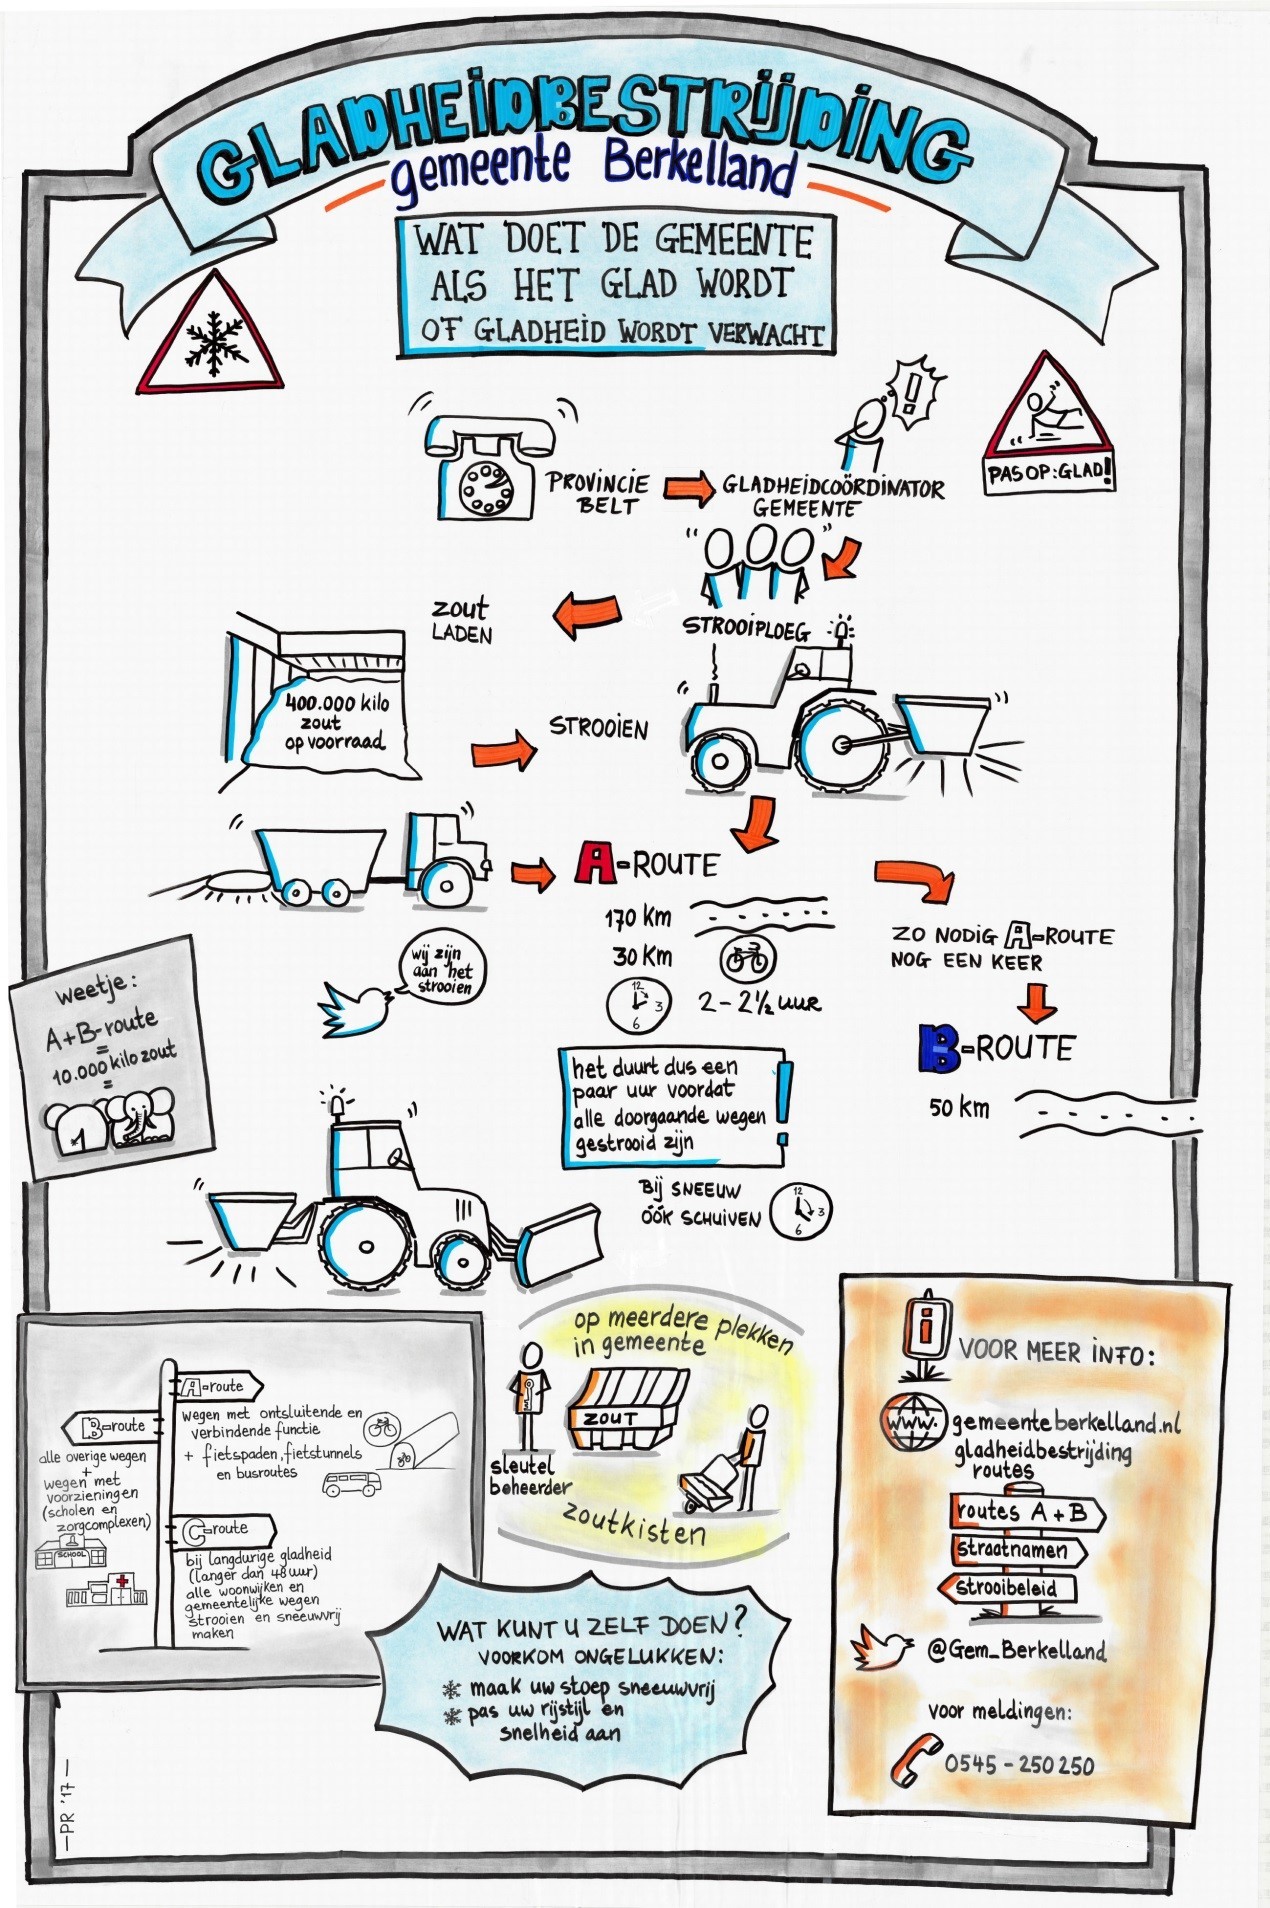 GLADHEIDBESTRIJDING
gemeente Berkelland
WAT DOET DE GEMEENTE
ALS HET GLAD WORDT
OF GLADHEID WORDT VERWACHT
!
PAS OP: GLAD!
PROVINCIE
BELT
GLADHEIDCOÖRDINATOR
GEMEENTE
STROOIPLOEG
zout
LADEN
400.000 kilo
zout
op voorraad
STROOIEN
A-ROUTE
170 km
30 km
12
3
6
2 - 2½ uur
ZO NODIG A-ROUTE
NOG EEN KEER
B-ROUTE
50 km
wij zijn
aan het
strooien
weetje:
A+B-route
=
10.000 kilo zout
=
1
het duurt dus een
paar uur voordat
alle doorgaande wegen
gestrooid zijn
!
Bij SNEEUW
ÓÓK SCHUIVEN
12
3
6
A-route
wegen met ontsluitende en
verbindende functie
+ fietspaden, fietstunnels
en busroutes
B-route
alle overige wegen
+
wegen met
voorzieningen
(scholen en
zorgcomplexen)
SCHOOL
C-route
bij langdurige gladheid
(langer dan 48 uur)
alle woonwijken en
gemeentelijke wegen
strooien en sneeuwvrij
maken
op meerdere plekken
in gemeente
ZOUT
sleutel
beheerder
zoutkisten
WAT KUNT U ZELF DOEN?
VOORKOM ONGELUKKEN:
maak uw stoep sneeuwvrij
pas uw rijstijl en
snelheid aan
i
VOOR MEER INFO:
www.
gemeenteberkelland.nl
gladheidbestrijding
routes
routes A + B
straatnamen
strooibeleid
@Gem_Berkelland
voor meldingen:
0545 - 250 250
—PR '17—